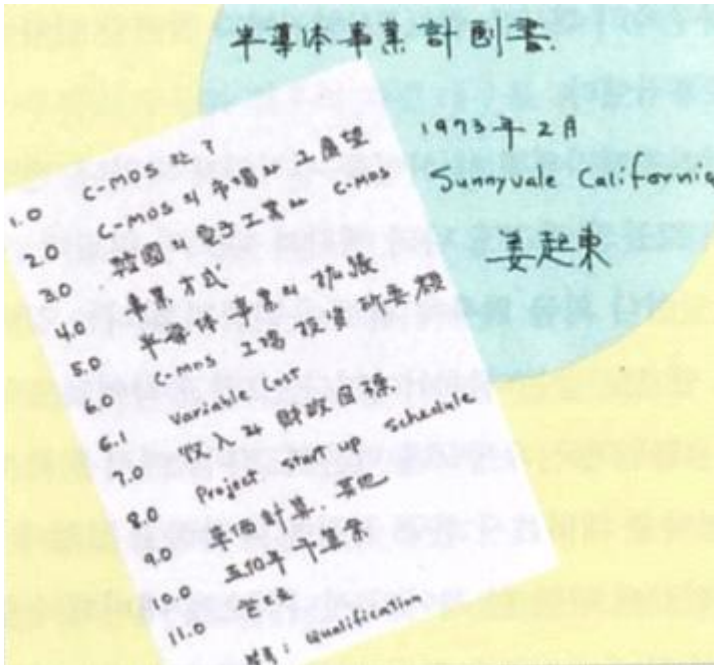 半導体事業計劃書
1973年 2月
Sunnyvale California
姜起東
1.0 C-MOS 란?
2.0 C-MOS 의 市場과 그 展望
3.0 韓國의 電子工業과 C-MOS
4.0 事業方式
5.0 半導体 事業의 拡張
6.0 C-MOS 工場 投資 所要額
6.1 Variable Cost
7.0 収入과 財政
8.0 Project start up schedule
9.0 単価計算, 其他
10.0 予算案
11.0
Qualification